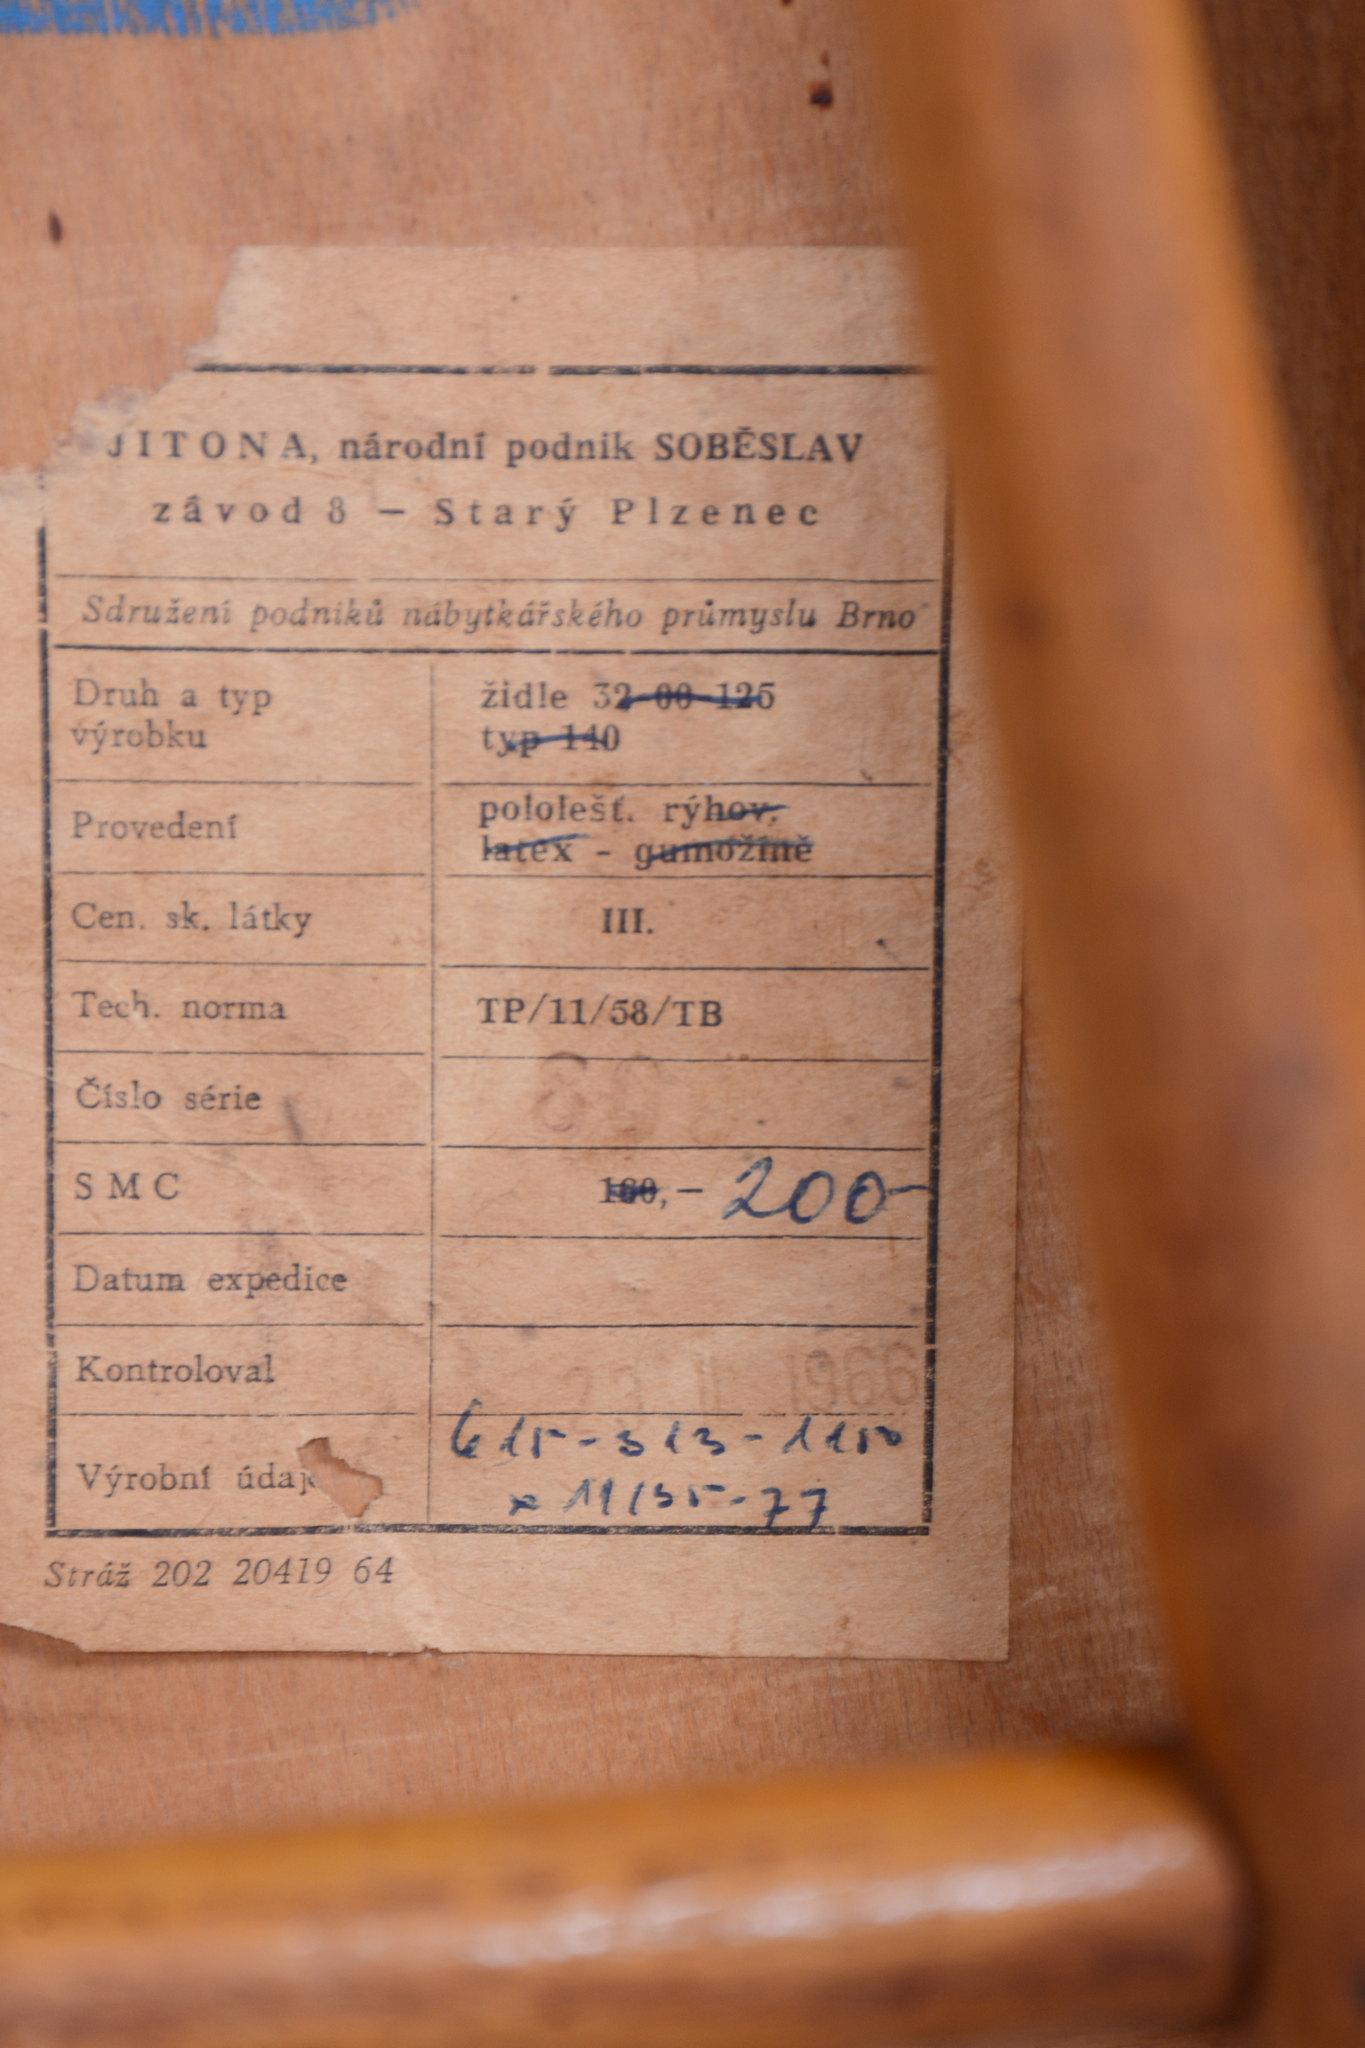 JITONA, národní podnik SOBĚSLAV
závod 8 — Starý Plzenec
Sdružení podniků nábytkářského průmyslu Brno
Druh a typ výrobku
židle 32-00-125
typ 140
Provedení
pololešť. rýhov.
latex - gumožíně
Cen. sk. látky III.
Tech. norma TP/11/58/TB
Číslo série
SMC ,— 200-
Datum expedice
Kontroloval 1966
Výrobní údaj
615-313-1150
Stráž 202 20419 64